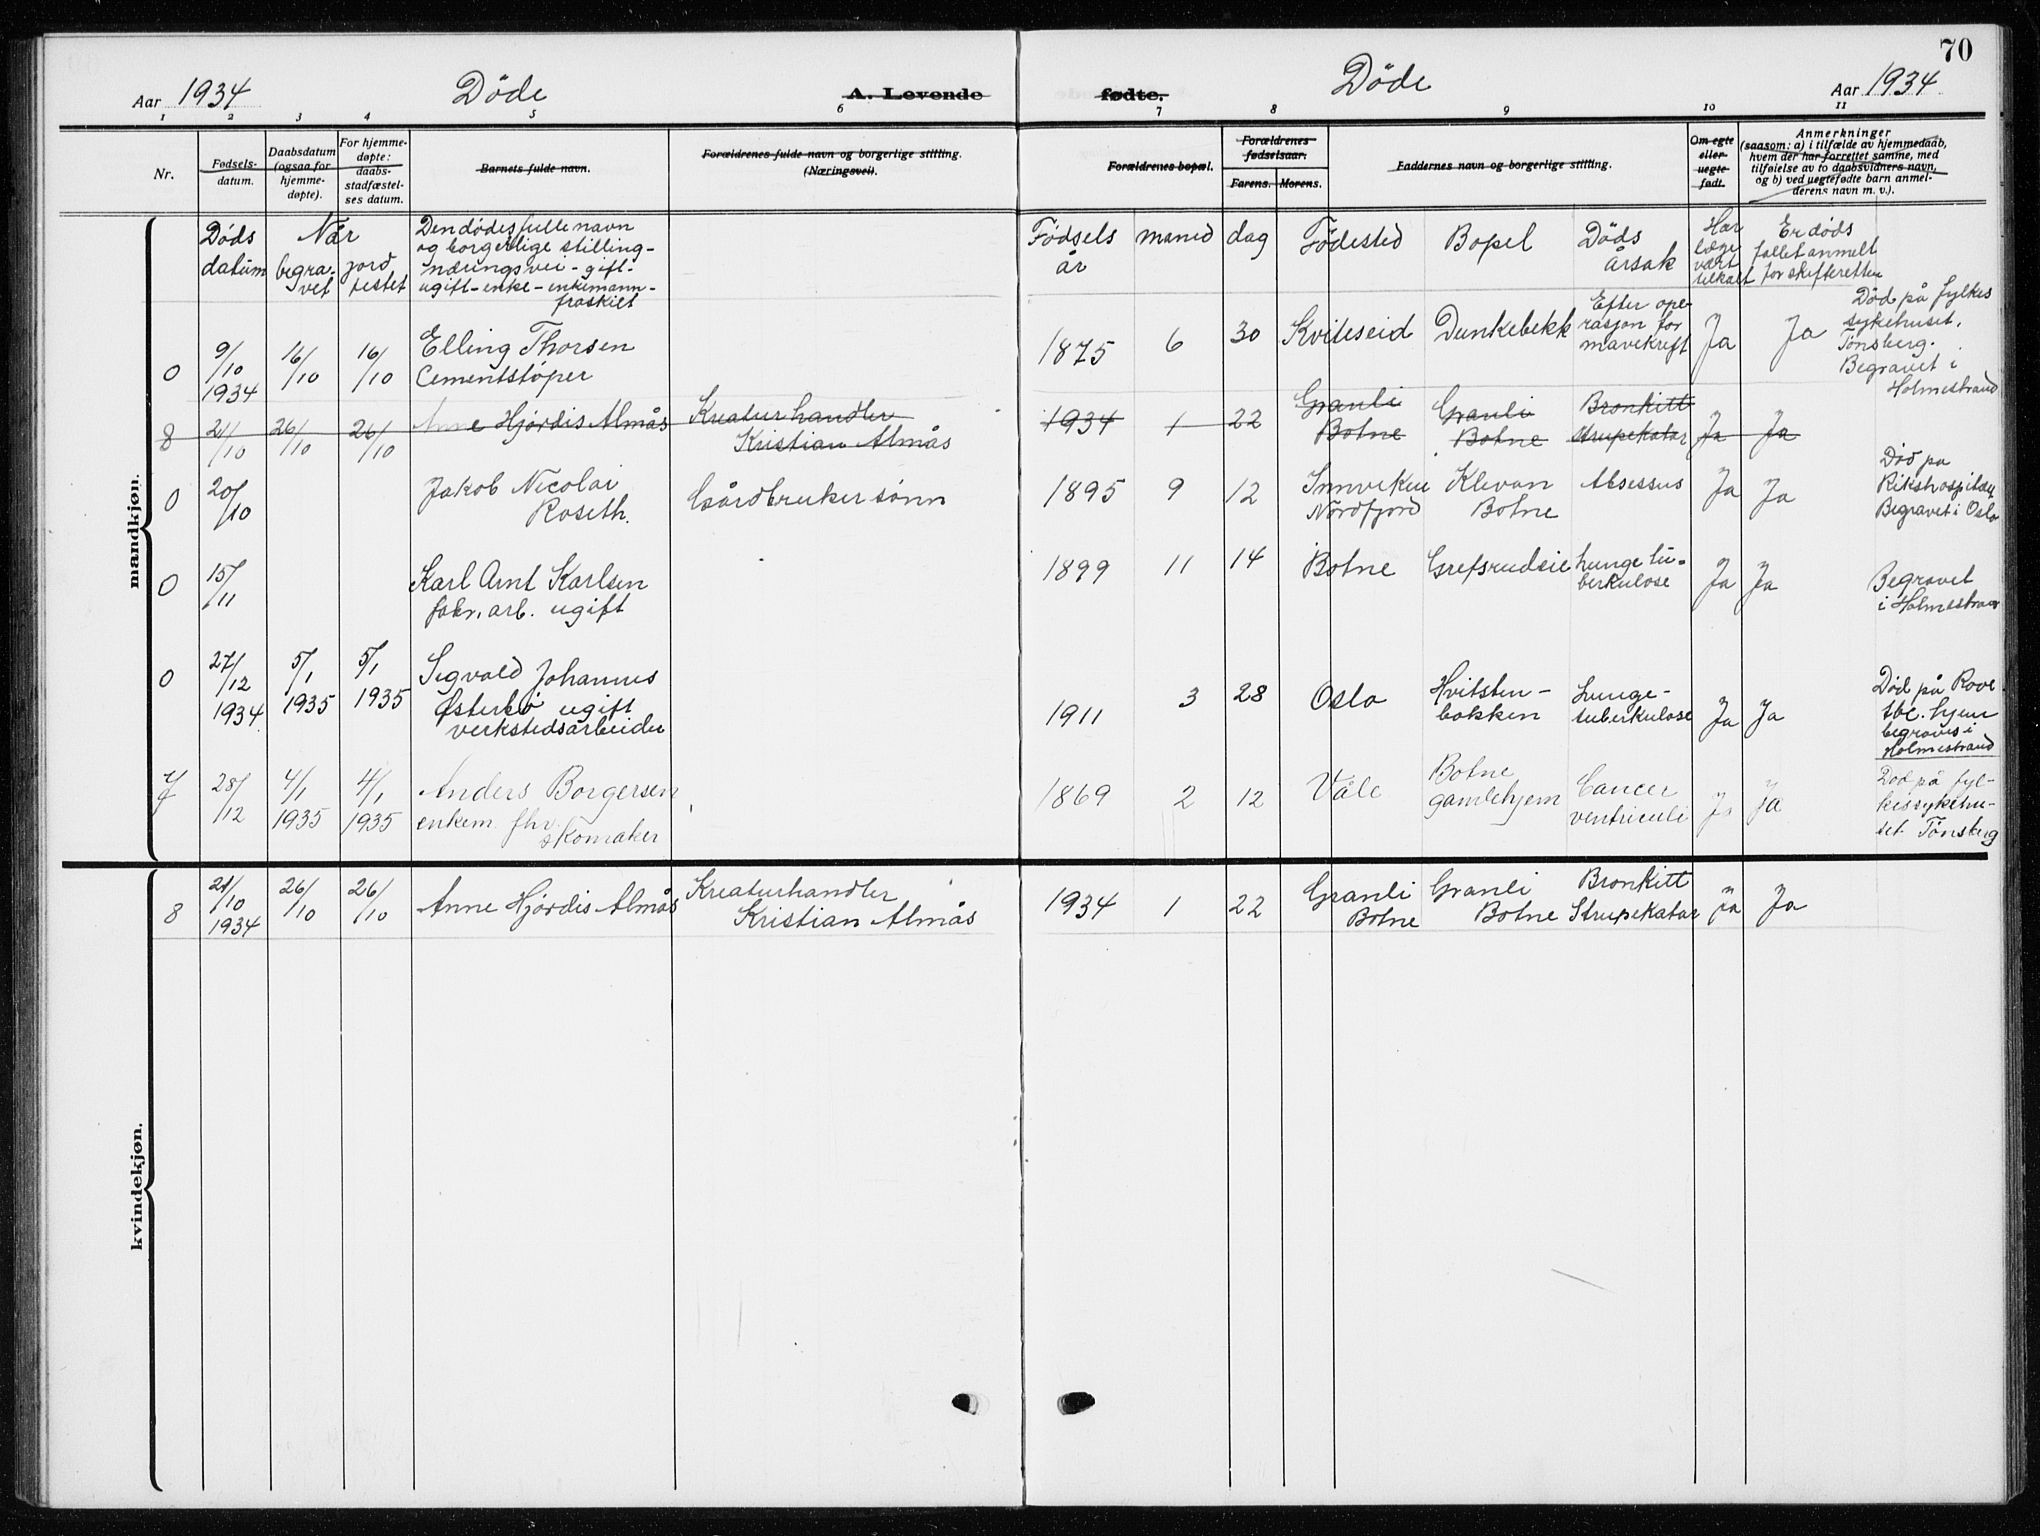 70
Aar 1934 Døde A. Levende fødte. Døde Aar 1934
1 2 3 4 5 6 7 8 9 10 11
Nr.
Fødsels-
datum.
Daabsdatum
(ogsaa for
hjemme-
døpte).
For hjemme-
døpte:
daabs-
stadfæstel-
ses datum.
Barnets fulde navn.
Forældrenes fulde navn og borgerlige stilling.
(Næringsvei).
Forældrenes bopæl.
Forældrenes
fødselsaar.
Farens. Morens.
Faddernes navn og borgerlige stilling.
Om egte
eller
uegte
født.
Anmerkninger
(saasom: a) i tilfælde av hjemmedaab,
hvem der har forrettet samme, med
tilføielse av to daabsvidners navn,
og b) ved uegtefødte barn anmel-
derens navn m. v.).
mandkjøn.
Døds
datum
Når
begra-
vet
jord
festet
Den dødes fulle navn
og borgerlige stilling -
næringsvei - gift -
ugift - enke - enkemann -
fraskilt
Fødsels
år
måned
dag
Fødested
Bopel
Døds
årsak
Har
læge
vært
tilkalt
Er døds
fallet anmelt
for skifteretten
0
9/10
1934
16/10
16/10
Elling Thorsen
Cementstøper
1875 6 30 Kviteseid Dunkebekk
Efter ope-
rasjon for
mavekreft
Ja Ja
Død på fylkes
sykehuset,
Tønsberg.
Begravet i
Holmestrand
8
21/10
26/10
26/10
Anne Hjørdis Almås
Kreaturhandler
Kristian Almås
1934 1 22
Granli
Botne
Granli
Botne
Bronkitt
Strupekatar
Ja Ja
0
20/10
Jakob Nicolai
Roseth.
Gårdbruker sønn
1895 9 12
Innviken
Nordfjord
Klevan
Botne
Absessus
Ja Ja
Død på
Rikshospitalet
Begravet i Oslo
0
15/11
Karl Arnt Karlsen
fabr. arb. ugift
1899 11 14 Botne Grefsrudeie
Lungetu-
berkulose
Ja Ja
Begravet
i Holmestrand
0
27/12
1934
5/1
1935
5/1
1935
Sigvald Johannes
Østerbø ugift
verkstedsarbeider
1911 3 28 Oslo
Hvitsten-
bakken
Lunge-
tuberkulose
Ja Ja
Død på Rove
tbc. hjem
begraves i
Holmestrand
7
28/12
4/1
1935
4/1
1935
Anders Borgersen
enkem. fhv.
skomaker
1869 2 12 Våle
Botne
gamlehjem
Cancer
ventriculi
Ja Ja
Død på fyl-
kessykehu-
set Tønsberg
kvindekjøn.
8
21/10
1934
26/10
26/10
Anne Hjørdis Almås
Kreaturhandler
Kristian Almås
1934 1 22
Granli
Botne
Granli
Botne
Bronkitt
Strupekatar
Ja Ja